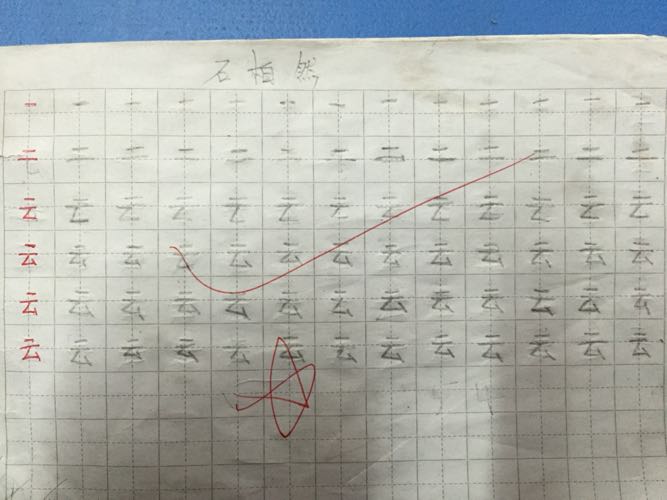 石柏然
一一一一一一一一一一一一一
二二二二二二二二二二二二二
云云云云云云云云云云云云云
云云云云云云云云云云云云云
云云云云云云云云云云云云云
云云云云云云云云云云云云云